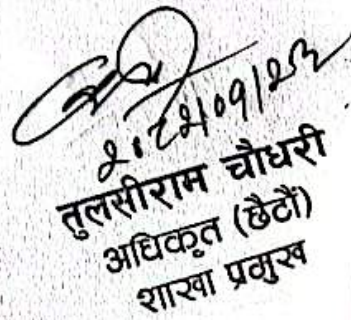 २०८२/०१/२३
तुलसीराम चौधरी
अधिकृत (छैटौं)
शाखा प्रमुख